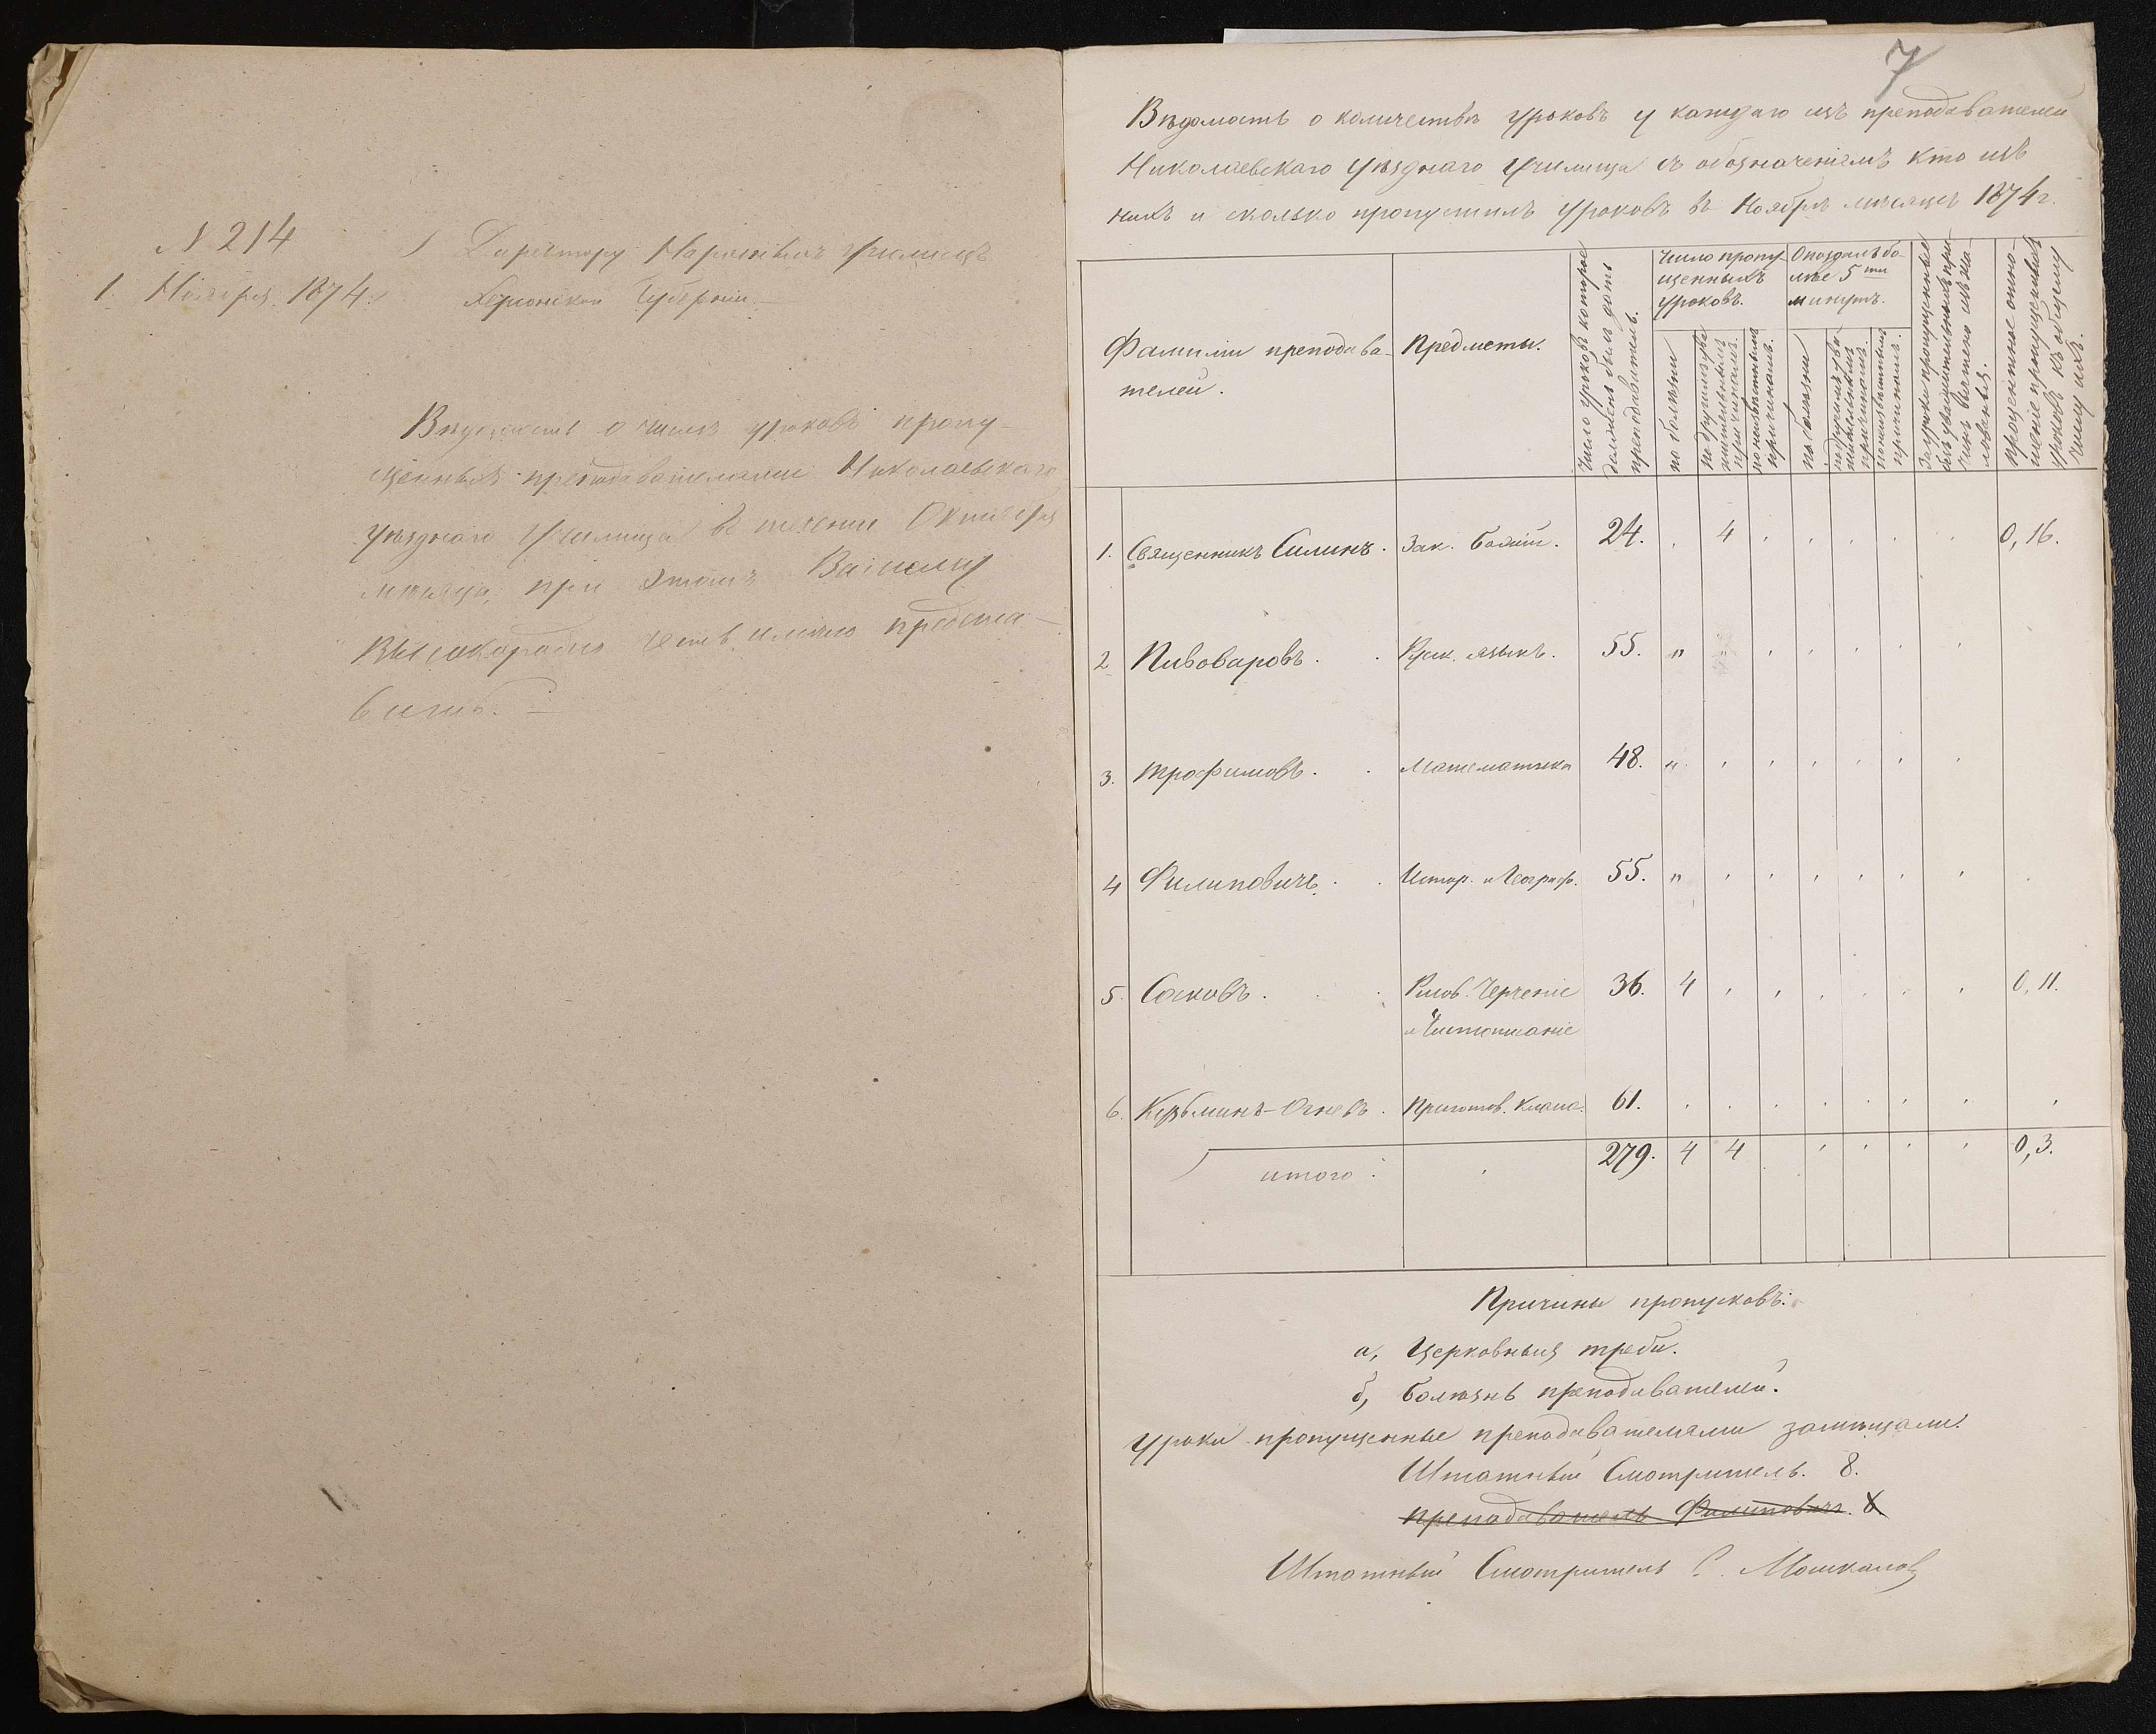 N 214
1 Ноября 1874 г.
Директору Народныхъ Училищъ
Херсонской Губернии.
Вѣдомость о числѣ уроковъ пропу-
щенныхъ преподавателями Николаевскаго
уѣзднаго Училища въ течении Октября
мѣсяца, при этомъ Вашему
Высокородию честь имѣю предста-
вить.
7
Вѣдомость о количествѣ уроковъ у каждаго изъ преподавателей
Николаевскаго Уѣзднаго Училища съ обозначеніемъ кто изъ
нихъ и сколько пропустилъ уроковъ въ Ноябрѣ мѣсяцѣ 1874 г.
Фамиліи преподава-
телей.
Предметы.
Число уроковъ которое
долженъ былъ дать
преподаватель.
Число пропу
щенныхъ
уроковъ.
по болѣзни
по другимъ ува
жительнымъ
причинамъ.
по неизвѣстнымъ
причинамъ.
Опоздалъ бо-
лѣе 5 ти
минутъ.
по болѣзни
по другимъ ува
жительнымъ
причинамъ.
по неизвѣстнымъ
причинамъ.
За уроки пропущенные
безъ уважительныхъ при-
чинъ вычтено изъ жа-
лованья.
Процентное отно-
шеніе пропущенныхъ
уроковъ къ общему
числу ихъ.
1. Священникъ Силинъ. Зак. Божій. 24. 4 0,16.
2 Пивоваровъ. Русск. языкъ. 55. "
3. Трофимовъ. Математика 48. "
4 Филиповичъ. Истор. и Географ. 55. "
5. Сосковъ. Рисов. Черченіе 36. 4 0,11.
и Чистописаніе
6. Кузьминъ-Огневъ. Приготов. Класс. 61.
итого: 279. 4 4 0,3.
Причины пропусковъ:
а, Церковныя требы.
б, Болѣзнь преподавателей.
Уроки пропущенные преподавателями замѣщали:
Штатный Смотритель. 8.
Преподаватель Филиповичъ. 8
Штатный Смотритель С. Мошкалов